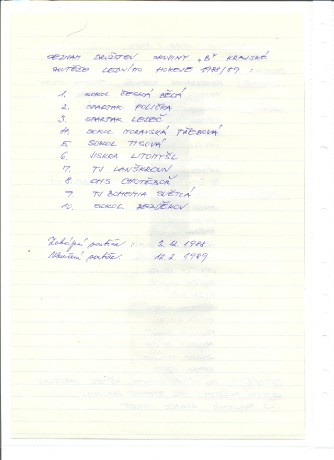 SEZNAM DRUŽSTEV SKUPINY „B" KRAJSKÉ
SOUTĚŽE LEDNÍHO HOKEJE 1988/89 :
1. SOKOL ČESKÁ BĚLÁ
2. SPARTAK POLIČKA
3. SPARTAK LEDEČ
4. SOKOL MORAVSKÁ TŘEBOVÁ
5. SOKOL TISOVÁ
6. JISKRA LITOMYŠL
7. TJ LANŠKROUN
8. CHS CHOTĚBOŘ
9. TJ BOHEMIA SVĚTLÁ
10. SOKOL BEZDĚKOV
Zahájení soutěže : 2. 12. 1988
Ukončení soutěže: 12. 2. 1989